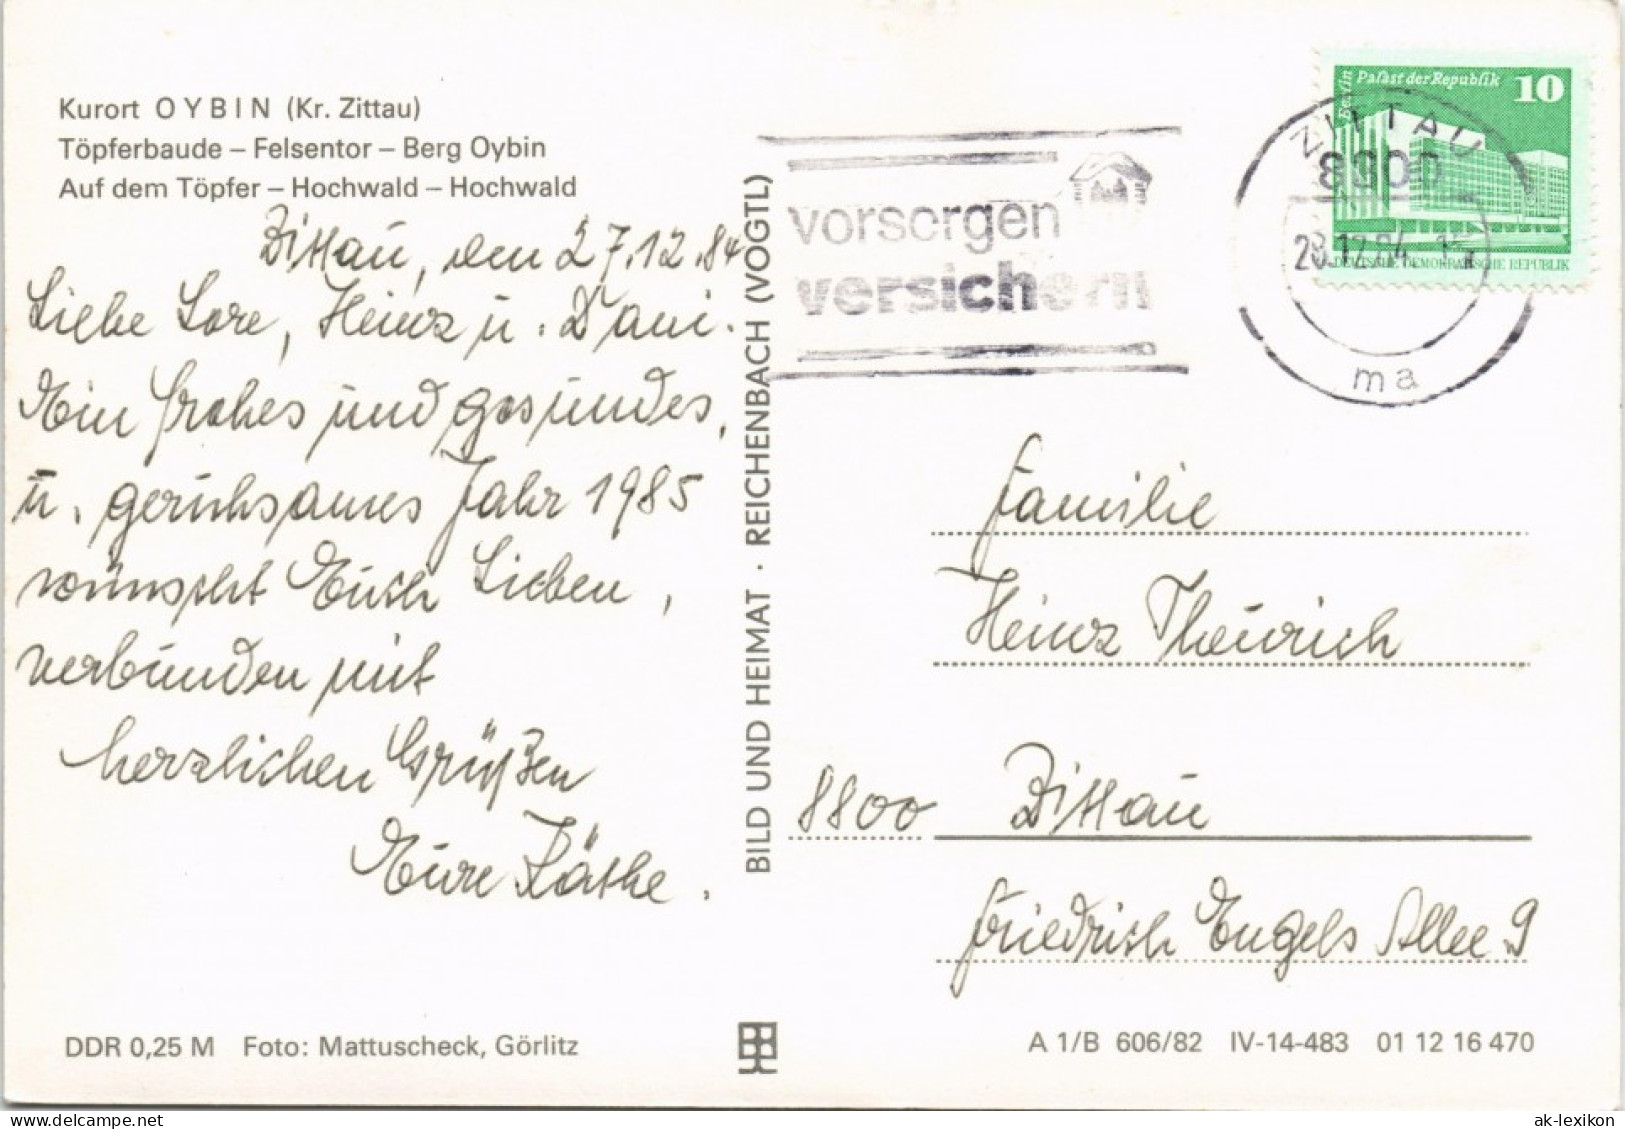 Kurort OYBIN (Kr. Zittau)
Töpferbaude – Felsentor – Berg Oybin
Auf dem Töpfer – Hochwald – Hochwald
Zittau, den 27.12.84
Liebe Lore, Heinz u. Dani.
Ein frohes und gesundes,
u. geruhsames Jahr 1985
wünscht Euch Lieben,
verbunden mit
herzlichen Grüßen
Eure Käthe.
DDR 0,25 M Foto: Mattuscheck, Görlitz
BILD UND HEIMAT · REICHENBACH (VOGTL)
vorsorgen
versichern
Berlin Palast der Republik 10
DEUTSCHE DEMOKRATISCHE REPUBLIK
ZITTAU
8800
28.12.84
ma
Familie
Heinz Theurich
8800 Zittau
Friedrich Engels Allee 9
A 1/B 606/82 IV-14-483 01 12 16 470
ak-lexikon.com